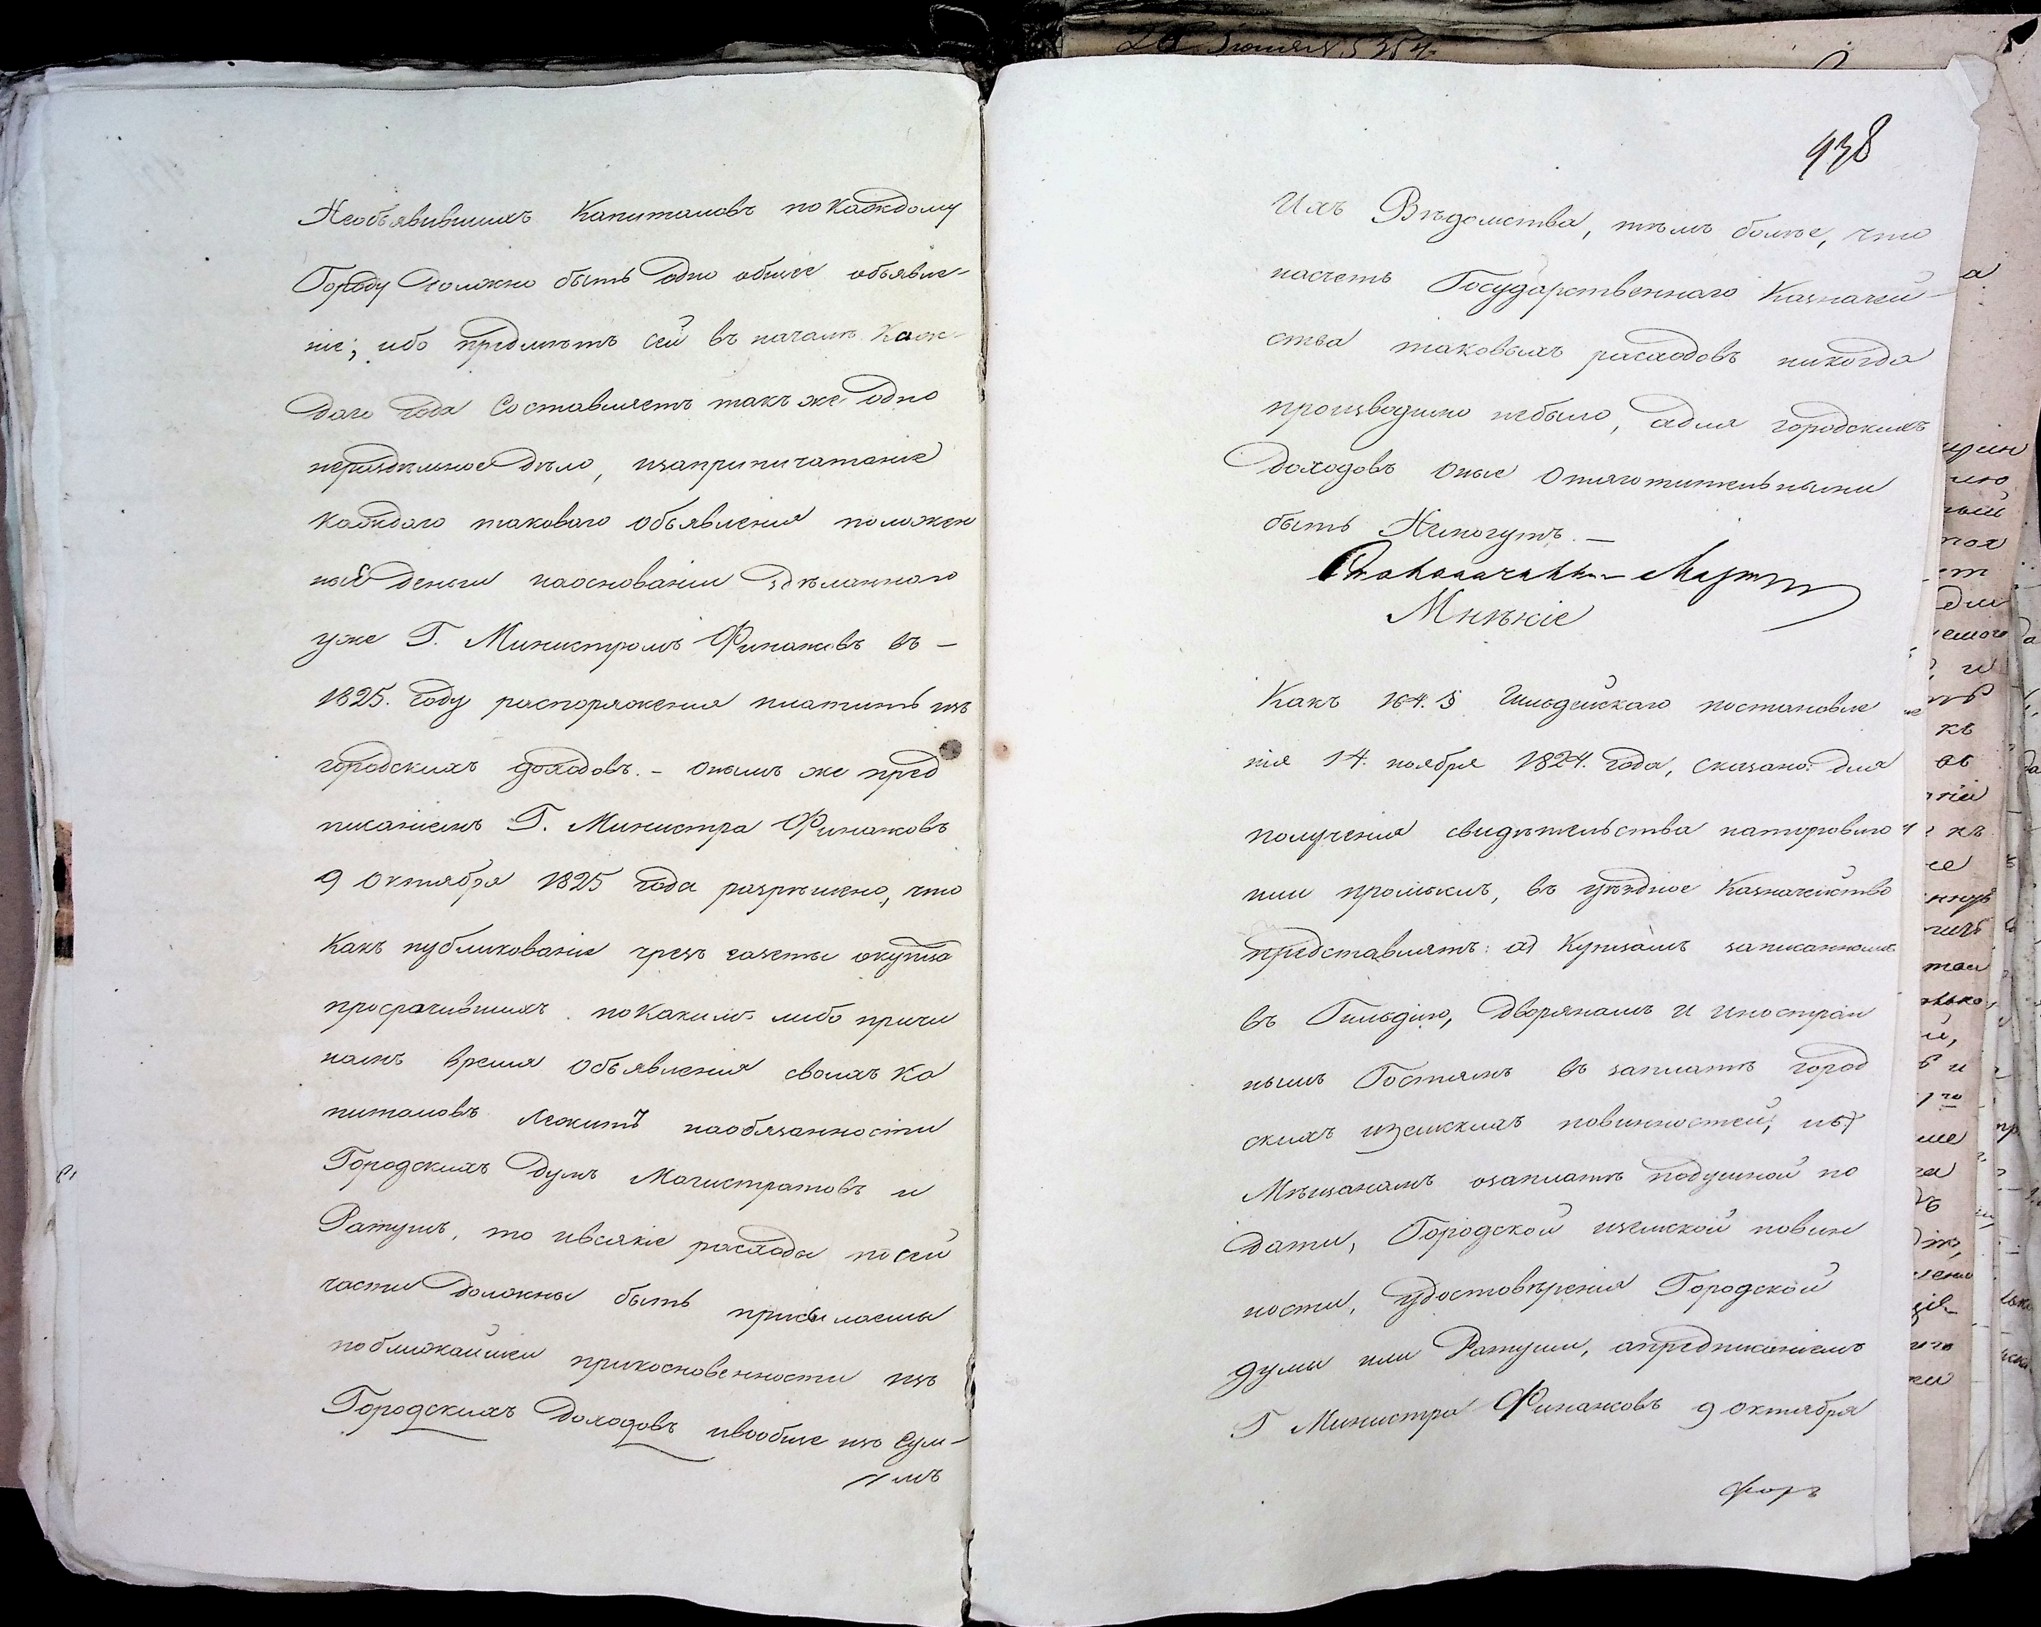 Необъявившихъ Капиталовъ по Каждому
Городу должно быть одно общее объявле-
ніе; ибо предметъ сей въ началѣ Каж-
даго года Составляетъ такъ же одно
нераздѣльное дѣло, изаприпичатаніе
каждаго таковаго объявленія положен
ныя деньги наоснованіи здѣланнаго
уже Г. Министромъ Финансовъ въ -
1825. году распоряженія платить изъ
городскихъ доходовъ. - онымъ же пред
писаніемъ Г. Министра Финансовъ
9 Октября 1825 года разрѣшено, что
Какъ публикованіе чрезъ газеты окупцахъ
просрочившихъ по Какимъ либо причи
намъ время Объявленія своихъ Ка
питаловъ лежитъ наобязанности
Городскихъ Думъ Магистратовъ и
Ратушъ, то ивсякіе расходы по сей
части Должны быть
поближайшей прикосновенности изъ
Городскихъ Доходовъ ивообще изъ Сум-
мъ
938
Ихъ Вѣдомства, тѣмъ болѣе, что
насчетъ Государственнаго Казначей-
ства таковыхъ расходовъ никогда
производимо небыло, адля городскихъ
Доходовъ Оные Отяготительными
быть Немогутъ. -
Мнѣніе
Какъ 164. § Гильдейскаго постановле
нія 14. ноября 1824. года, сказано: для
полученія свидѣтельства наторговлю
или промыслъ, въ уѣздное Казначейство
представлять: а) Купцамъ записаннымъ
въ Гильдію, Дворянамъ и иностран
нымъ Гостямъ въ заплатѣ город
скихъ иземскихъ повинностей,
Мѣщанамъ озаплатѣ подушной по
дати, Городской иземской повин
ности, удостовѣренія Городской
думы или Ратуши, апредписаніемъ
Г Министра Финансовъ 9 октября